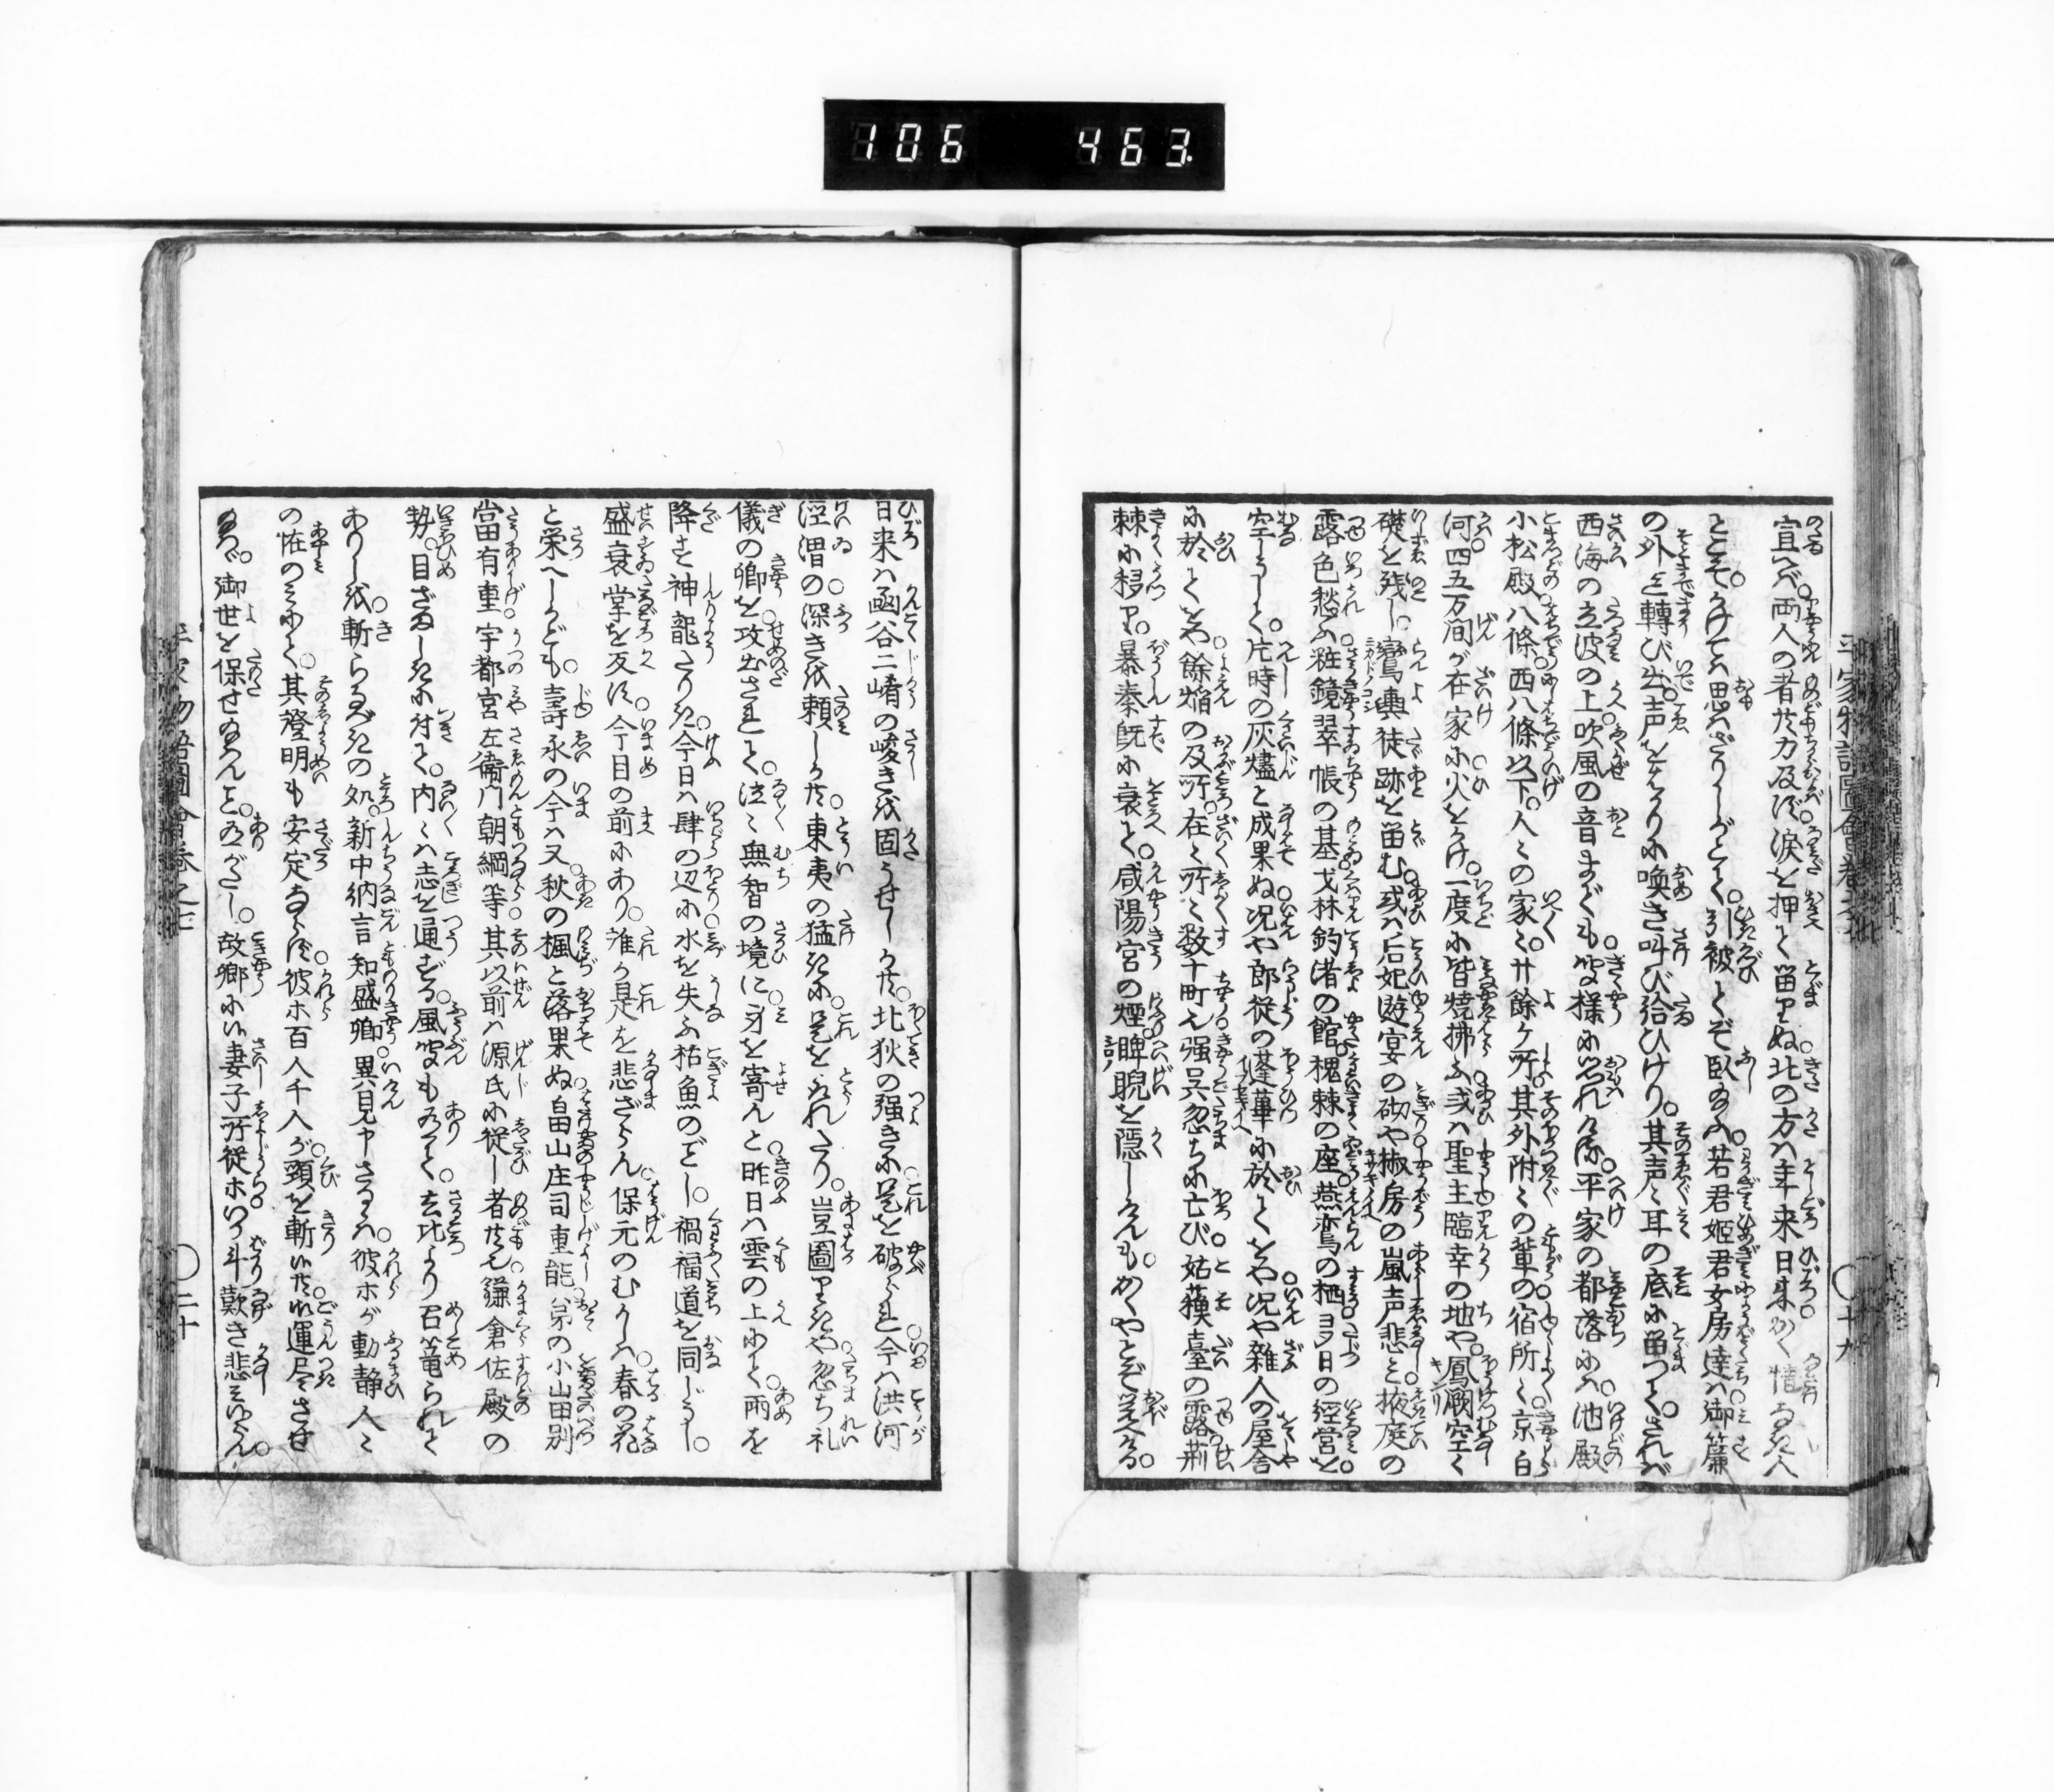 106 463
宣へバ両人の者共力及バず涙を押へて留りぬ北の方ハ年来日来かく情なき人
とこそかけてハ思ハざりしがとて引被てぞ臥給ふ若君姫君女房達ハ御簾
の外まで轉び出声をはかりに喚き叫び給ひけり其声〻耳の底に留つてされバ
西海の立波の上吹風の音までも聞様に思ハれけん平家の都落にハ池殿
小松殿八條西八條以下人〻の家〻廿餘ヶ所其外附〻の輩の宿所〻京白
河四五万間が在家に火をかけ一度に皆焼拂ふ或ハ聖主臨幸の地や鳳闕空く
礎を残し鸞輿徒跡を留む或ハ后妃遊宴の砌や椒房の嵐声悲と掖庭の
露色愁ふ粧鏡翠帳の基戈林釣渚の館槐棘の座燕鸞の栖多日の経営を
空しうして片時の灰燼と成果ぬ況や郎従の蓬蓽に於てをや況や雑人の屋舎
に於てをや餘焔の及所在〻所〻数十町也强呉忽ちに亡び姑蘇臺の露荊
棘に移り暴秦既に衰て咸陽宮の煙睥睨を隠しけんもかくやとぞ覚ける
日来ハ函谷二崤の峻きを固うせしかバ北狄の强きに是を破られ今ハ洪河
涇渭の深きを頼しか共東夷の猛きに是をとられたり豈圖りきや忽ち礼
儀の郷を攻出されて泣〻無智の境に身を寄んと昨日ハ雲の上にて雨を
降す神龍たりき今日ハ肆の辺に水を失ふ枯魚のごとし禍福道を同じうし
盛衰掌を反す今目の前にあり誰か是を悲ざらん保元のむかしハ春の花
と栄へしかども壽永の今ハ又秋の楓と落果ぬ畠山庄司重能弟の小山田別
當有重宇都宮左衛門朝綱等其以前ハ源氏に従し者共也鎌倉佐殿の
勢目ざましきに付て内〻ハ志を通ずる風聞もありて去比より召篭られて
ありしを斬らるべきの処新中納言知盛卿異見申さるるハ彼ホが動静人〻
の恠のミにて其證明も安定ならず彼ホ百人千人が頸を斬い共御運尽させ
給ハバ御世を保せ給ハんこと有がたし故郷にハ妻子所従ホいか斗歎き悲ミいらん